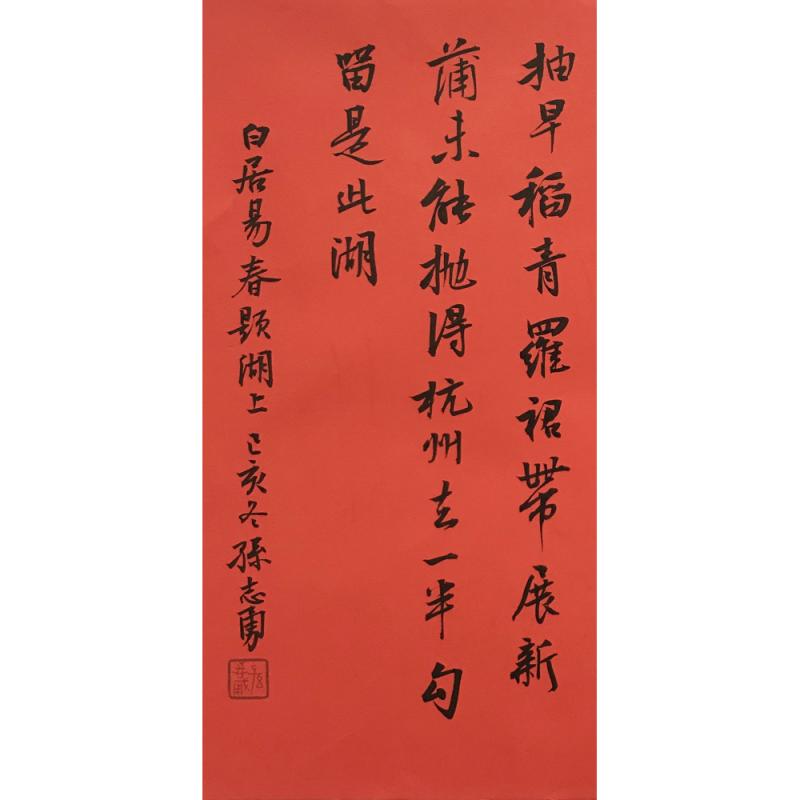 抽早稻青羅裙帶展新
蒲未能抛得杭州去一半勾
留是此湖
白居易春題湖上 己亥冬孫志勇